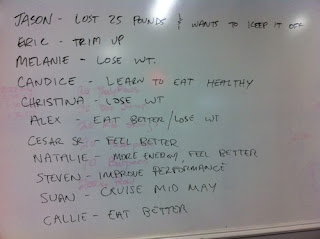 JASON - LOST 25 POUNDS & WANTS TO KEEP IT OFF
ERIC - TRIM UP
MELANIE - LOSE WT.
CANDICE - LEARN TO EAT HEALTHY
CHRISTINA - LOSE WT
ALEX - EAT BETTER/LOSE WT
CESAR SR - FEEL BETTER
NATALIE - MORE ENERGY, FEEL BETTER
STEVEN - IMPROVE PERFORMANCE
SUAN - CRUISE MID MAY
CALLIE - EAT BETTER